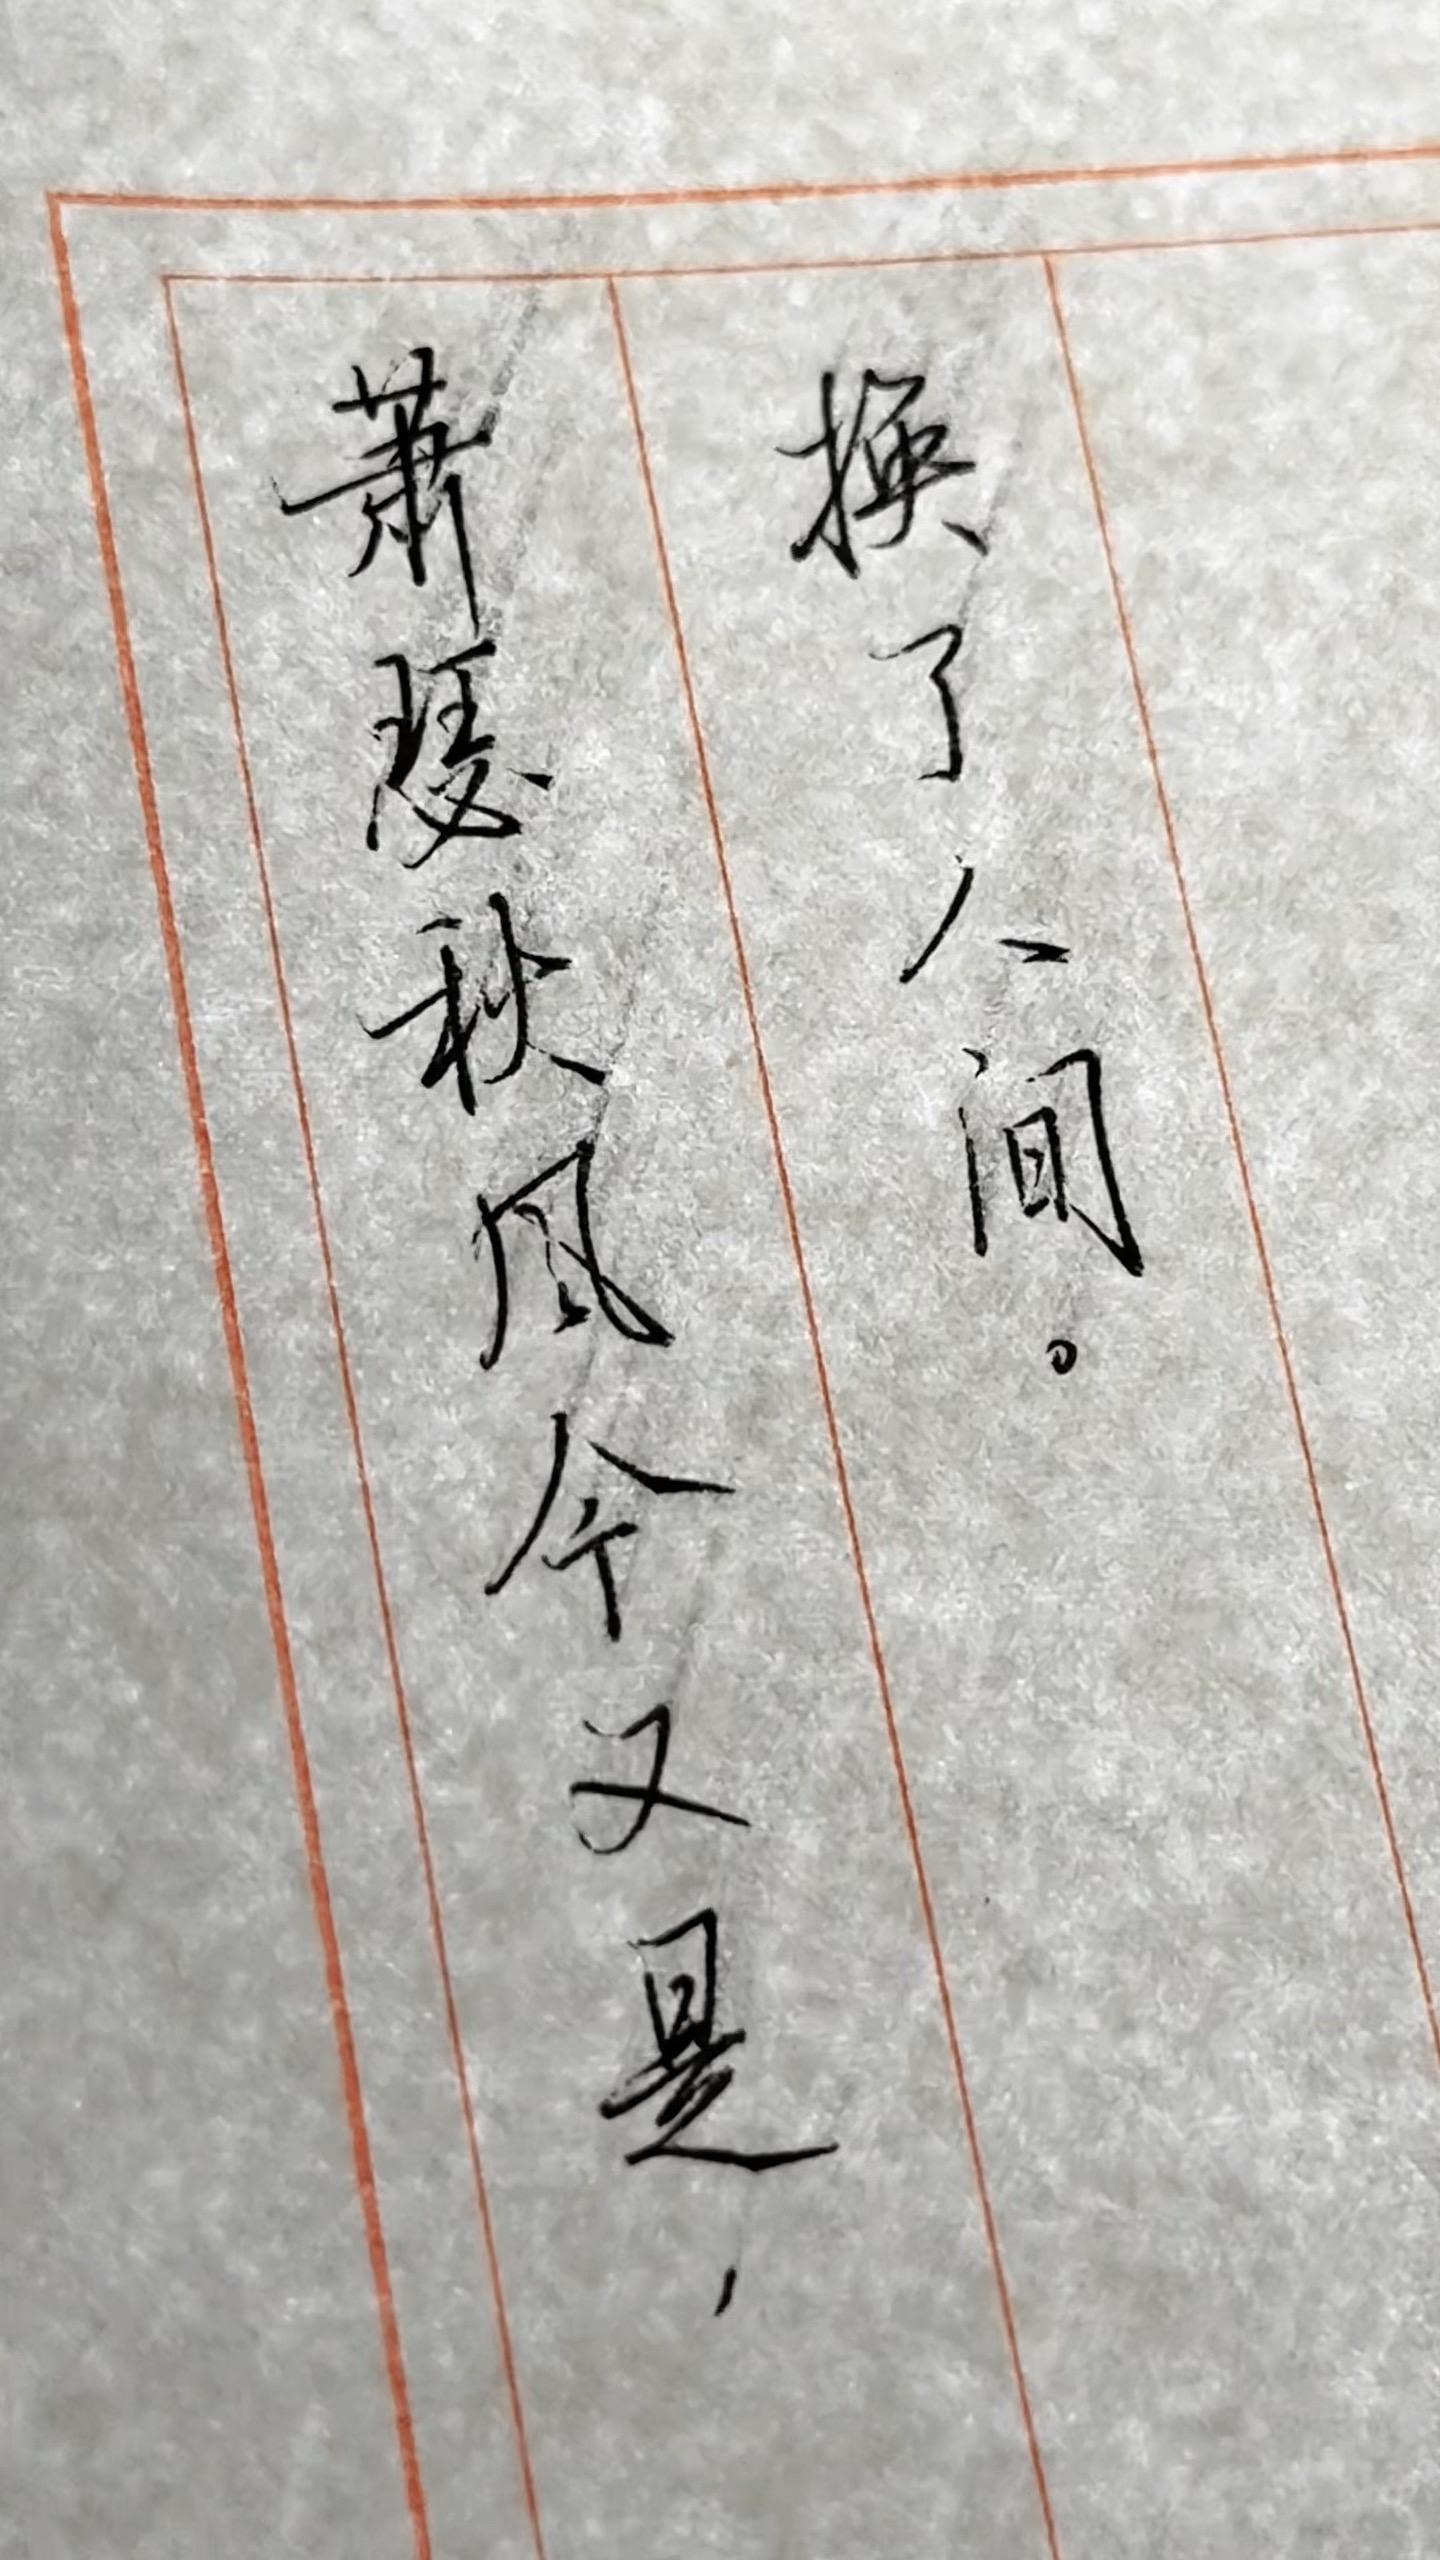 萧瑟秋风今又是，
换了人间。